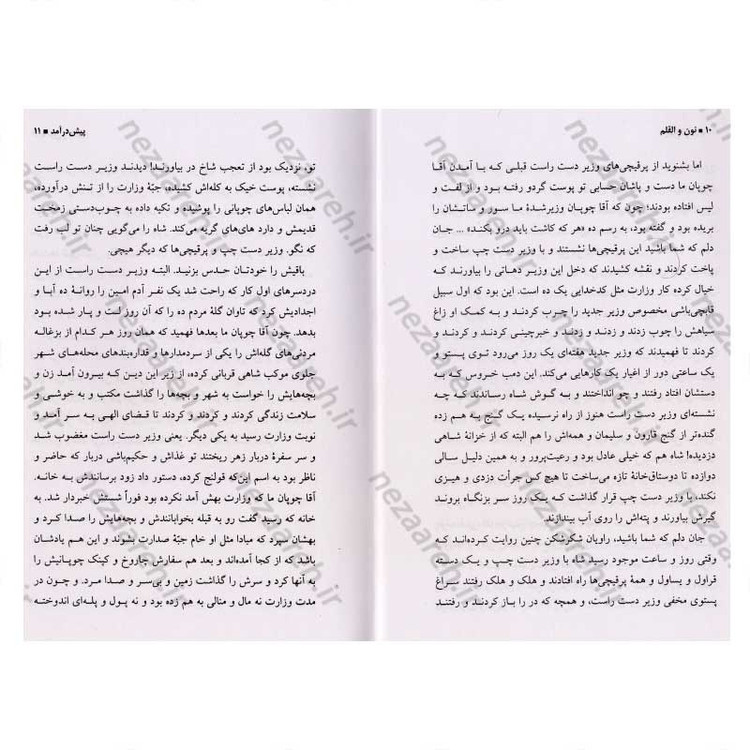 ۱۰ ■ نون و القلم
اما بشنوید از پرقیچی‌های وزیر دست راست قبلی که با آمدن آقا
چوپان ما دست و پاشان حسابی تو پوست گردو رفته بود و از لفت و
لیس افتاده بودند؛ چون که آقا چوپان وزیرشدهٔ ما سور و ساتشان را
بریده بود و گفته بود، به رسم ده «هر که کاشت باید درو بکند» ... جان
دلم که شما باشید این پرقیچی‌ها نشستند و با وزیر دست چپ ساخت و
پاخت کردند و نقشه کشیدند که دخل این وزیر دهاتی را بیاورند که
خیال کرده کار وزارت مثل کدخدایی یک ده است. این بود که اول سبیل
قاپچی‌باشی مخصوص وزیر جدید را چرب کردند و به کمک او زاغ
سیاهش را چوب زدند و زدند و زدند و خبرچینی کردند و کردند و
کردند تا فهمیدند که وزیر جدید هفته‌ای یک روز می‌رود توی پستو و
یک ساعتی دور از اغیار یک کارهایی می‌کند. این دمب خروس که به
دستشان افتاد رفتند و چو انداختند و به گوش شاه رساندند که چه
نشسته‌ای وزیر دست راست هنوز از راه نرسیده یک گنج به هم زده
گنده‌تر از گنج قارون و سلیمان و همه‌اش را هم البته که از خزانهٔ شاهی
دزدیده! شاه هم که خیلی عادل بود و رعیت‌پرور و به همین دلیل سالی
دوازده تا دوستاق‌خانهٔ تازه می‌ساخت تا هیچ کس جرأت دزدی و هیزی
نکند، با وزیر دست چپ قرار گذاشت که یک روز سر بزنگاه بروند
گیرش بیاورند و پته‌اش را روی آب بیندازند.
جان دلم که شما باشید، راویان شکرشکن چنین روایت کرده‌اند که
وقتی روز و ساعت موعود رسید شاه با وزیر دست چپ و یک دسته
قراول و یساول و همهٔ پرقیچی‌ها راه افتادند و هلک و هلک رفتند سراغ
پستوی مخفی وزیر دست راست، و همچه که در را باز کردند و رفتند
پیش‌درآمد ■ ۱۱
تو، نزدیک بود از تعجب شاخ در بیاورند! دیدند وزیر دست راست
نشسته، پوست خیک به کله‌اش کشیده، جبّهٔ وزارت را از تنش درآورده،
همان لباس‌های چوپانی را پوشیده و تکیه داده به چوب‌دستی زمخت
قدیمش و دارد های‌های گریه می‌کند. شاه را می‌گویی چنان تو لب رفت
که نگو. وزیر دست چپ و پرقیچی‌ها که دیگر هیچی.
باقیش را خودتان حدس بزنید. البته وزیر دست راست از این
دردسرهای اول کار که راحت شد یک نفر آدم امین را روانهٔ ده آبا و
اجدادیش کرد که تاوان گلهٔ مردم ده را که آن روز لت و پار شده بود
بدهد. چون آقا چوپان ما بعدها فهمید که همان روز هر کدام از بزغاله
مردنی‌های گله‌اش را یکی از سردمدارها و قداره‌بندهای محله‌های شهر
جلوی موکب شاهی قربانی کرده، از زیر این دین که بیرون آمد زن و
بچه‌هایش را خواست به شهر و بچه‌ها را گذاشت مکتب و به خوشی و
سلامت زندگی کردند و کردند و کردند تا قضای الهی به سر آمد و
نوبت وزارت رسید به یکی دیگر. یعنی وزیر دست راست مغضوب شد
و سر سفرهٔ دربار زهر ریختند تو غذاش و حکیم‌باشی دربار که حاضر و
ناظر بود به اسم این‌که قولنج کرده، دستور داد زود برسانندش به خانه.
آقا چوپان ما که وزارت بهش آمد نکرده بود فوراً شستش خبردار شد. به
خانه که رسید گفت رو به قبله بخوابانندش و بچه‌هایش را صدا کرد و
بهشان سپرد که مبادا مثل او خام جبّهٔ صدارت بشوند و این هم یادشان
باشد که از کجا آمده‌اند و بعد هم سفارش چاروخ و کپنک چوپانیش را
به آنها کرد و سرش را گذاشت زمین و بی‌سر و صدا مرد. و چون در
مدت وزارت نه مال و منالی به هم زده بود و نه پول و پله‌ای اندوخته
nezaareh.ir
nezaareh.ir
nezaareh.ir
nezaareh.ir
nezaareh.ir
nezaareh.ir